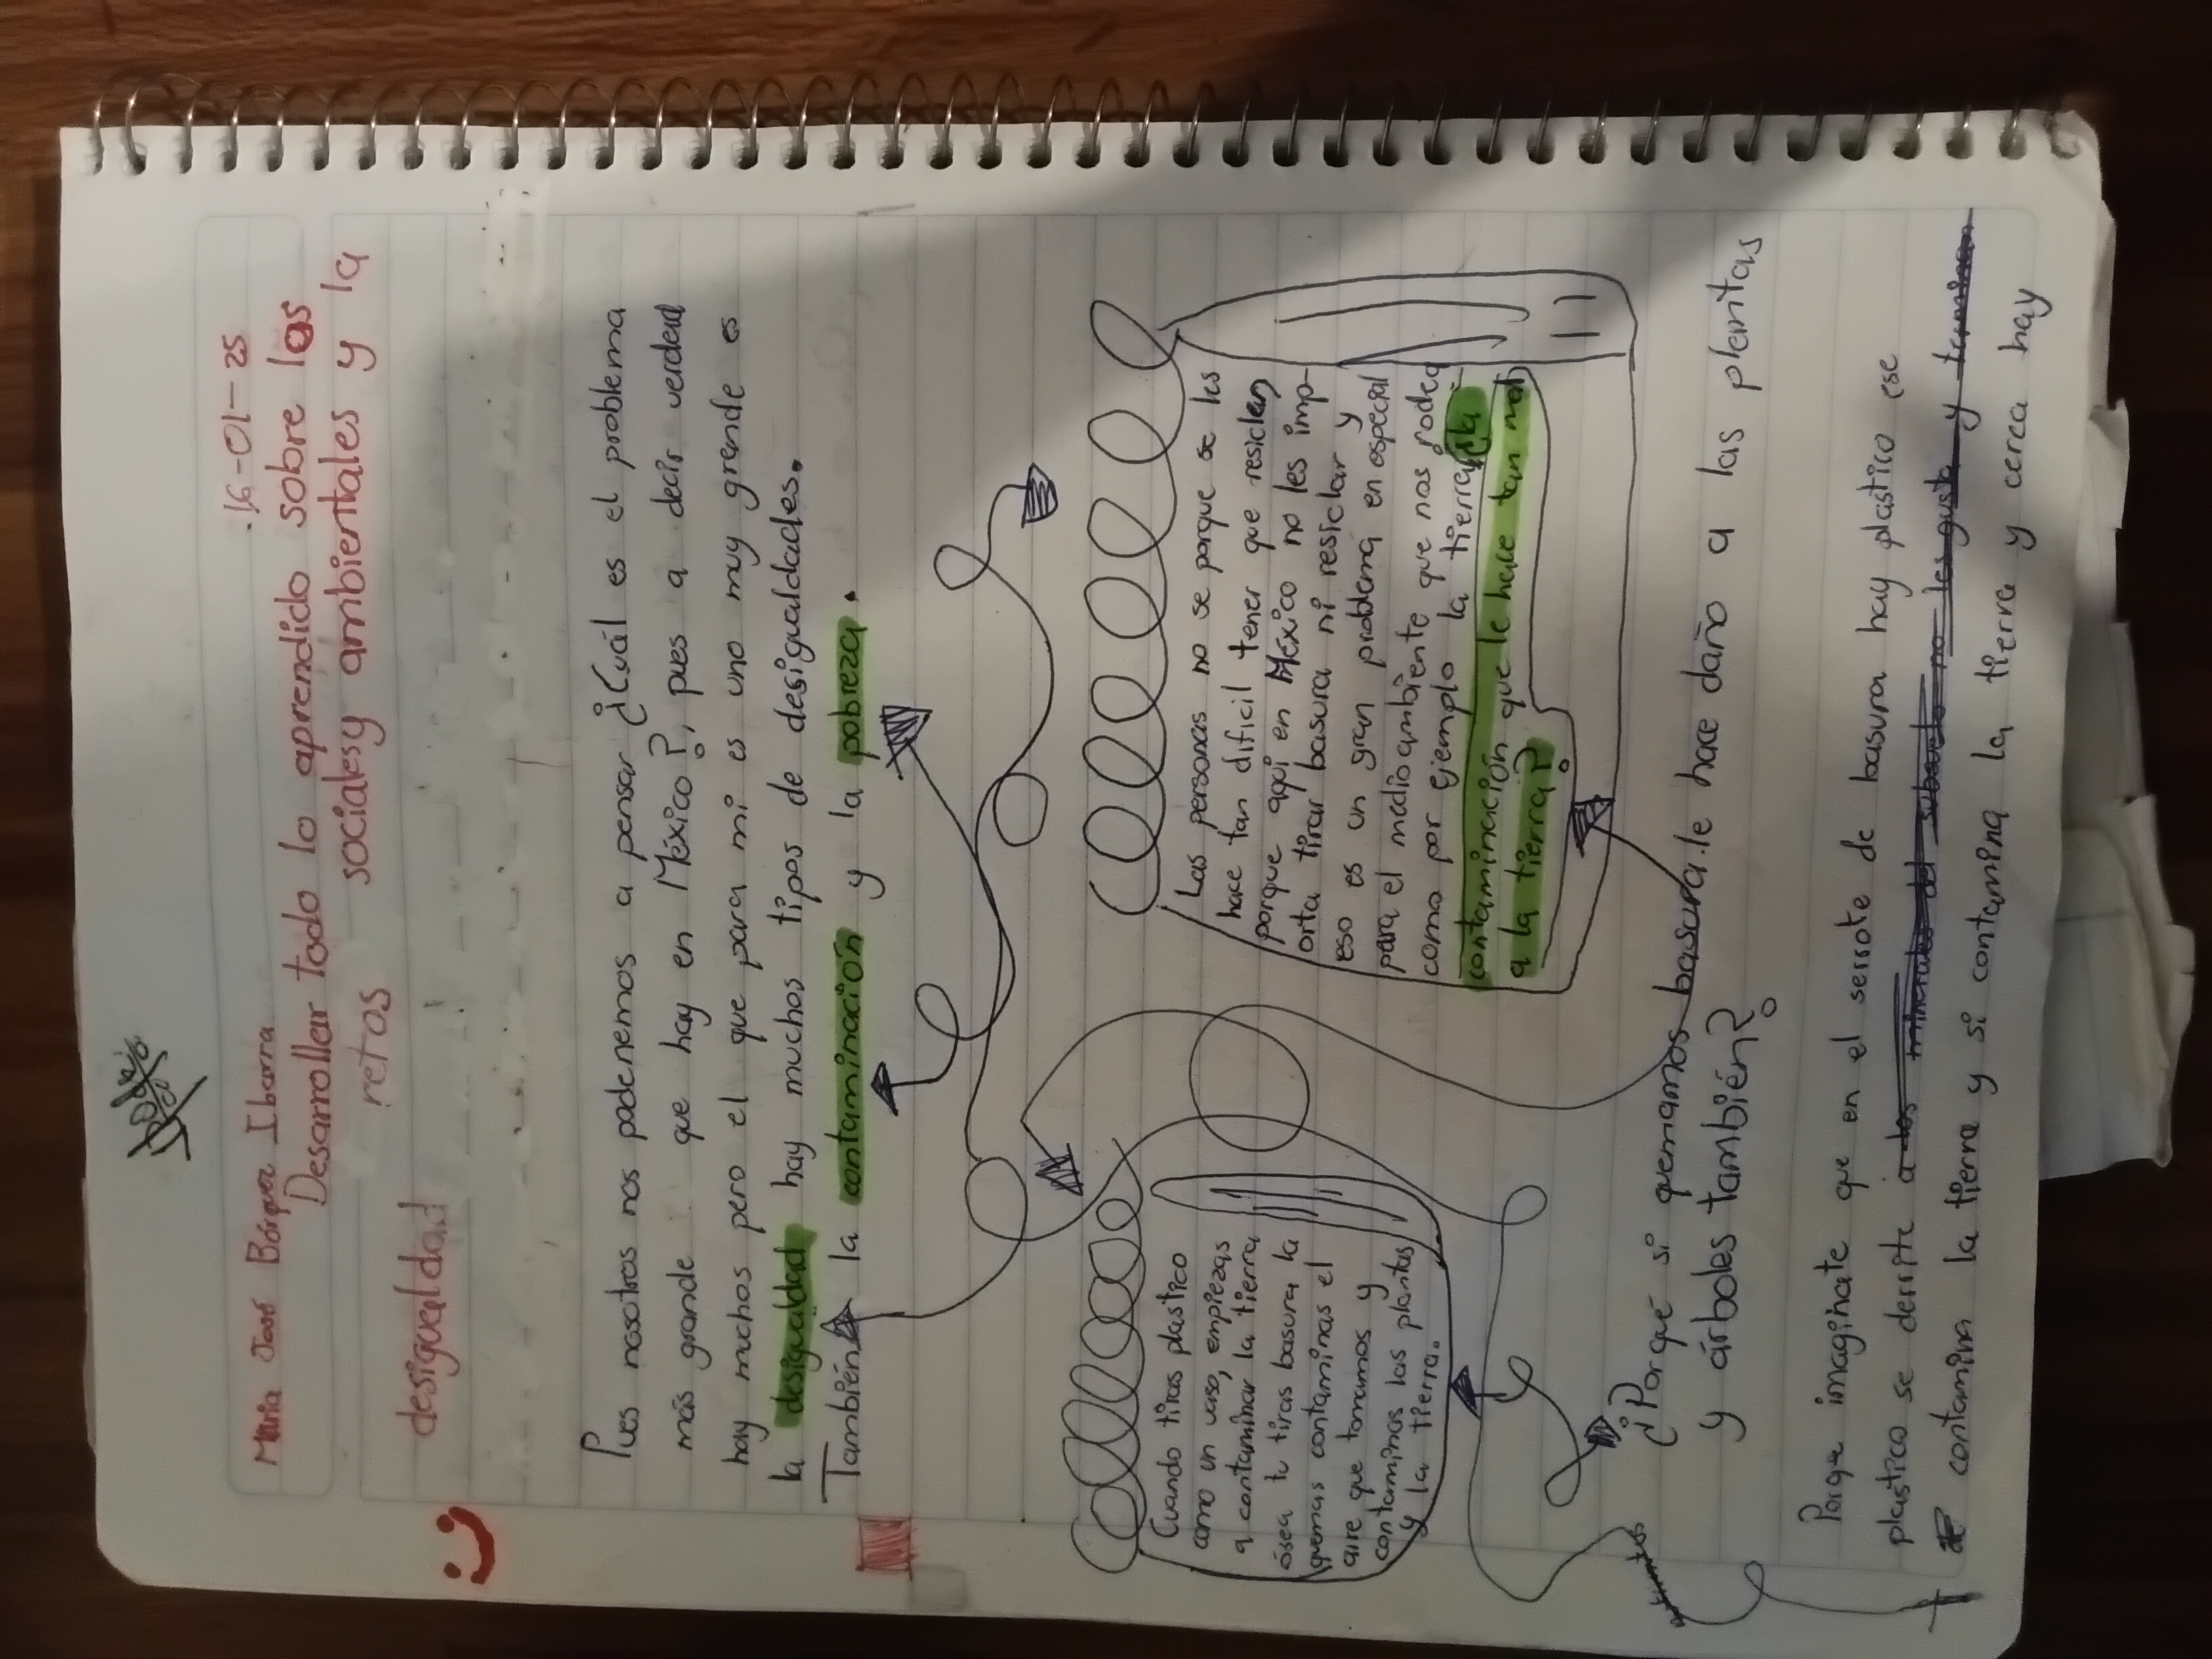 16-01-25
Maria José Bórquez Ibarra
Desarrollar todo lo aprendido sobre los
retos sociales y ambientales y la
desigualdad
Pues nosotros nos podenemos a pensar ¿Cuál es el problema
más grande que hay en México?, pues a decir verdad
hay muchos pero el que para mi es uno muy grende es
la desigualdad hay muchos tipos de desigualdades.
También la contaminación y la pobreza.
Cuando tiras plastico
como un vaso, empiezas
a contaminar la tierra
ósea tu tiras basura la
quemas contaminas el
aire que tomamos y
contaminas las plantas
y la tierra.
Las personas no se porque se les
hace tan dificil tener que resiclen
porque aqui en México no les imp-
orta tirar basura ni resiclar y
eso es un gran problema en especial
para el medio ambiente que nos rodea
como por ejemplo la tierra ¿la
contaminación que le hace tan mal
a la tierra?
¿Porqué si quemamos basura le hace daño a las plantas
y árboles también?
Porqe imaginate que en el serrote de basura hay plastico ese
plastico se derrite a los minerales del subsuelo no les gusta y terminan
contamina la tierra y si contamina la tierra y cerca hay